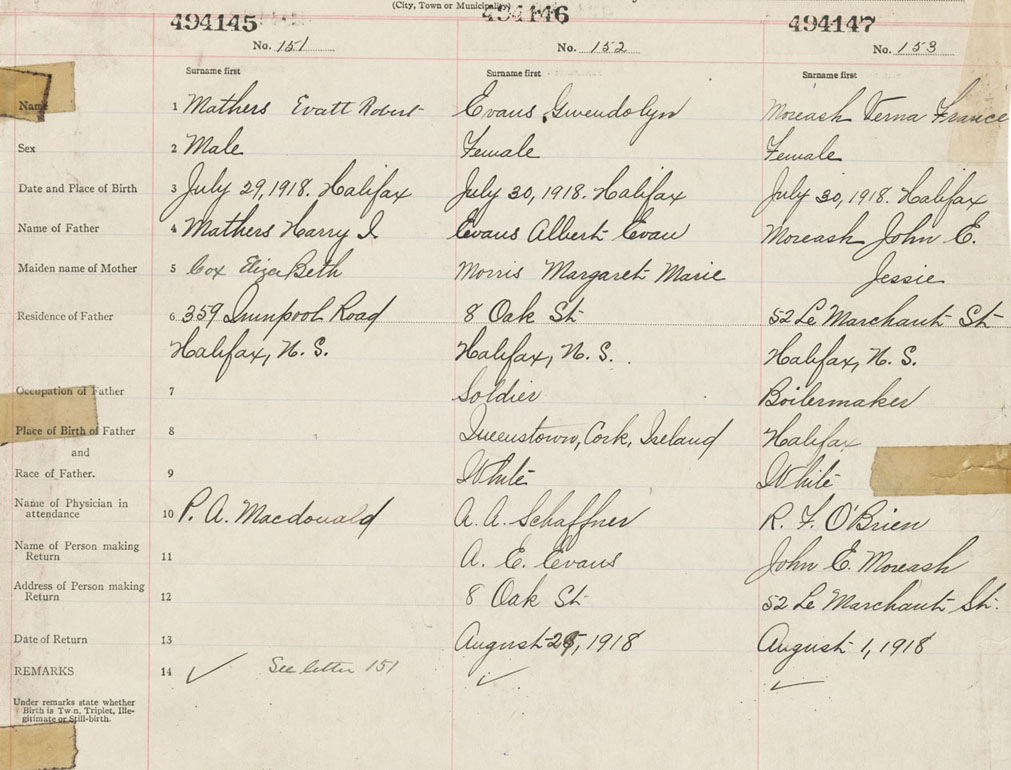 (City, Town or Municipality)
494145 494146 494147
No. 151 No. 152 No. 153
Surname first Surname first Surname first
Name 1 Mathers Evatt Robert Evans, Gwendolyn Moreash Verna France
Sex 2 Male Female Female
Date and Place of Birth 3 July 29, 1918. Halifax July 30, 1918. Halifax July 30, 1918. Halifax
Name of Father 4 Mathers Harry I. Evans Albert Evan Moreash John E.
Maiden name of Mother 5 Cox ElizaBeth Morris Margaret Marie Jessie
Residence of Father 6 359 Quinpool Road 8 Oak St 52 Le Marchant St
Halifax, N.S. Halifax, N.S. Halifax, N.S.
Occupation of Father 7 Soldier Boilermaker
Place of Birth of Father 8 Queenstown, Cork, Ireland Halifax
and
Race of Father. 9 White White
Name of Physician in
attendance 10 P. A. Macdonald A. A. Schaffner R. F. O'Brien
Name of Person making
Return 11 A. E. Evans John E. Moreash
Address of Person making
Return 12 8 Oak St 52 Le Marchant St.
Date of Return 13 August 25, 1918 August 1, 1918
REMARKS 14 ✓ See letter 151 ✓ ✓
Under remarks state whether
Birth is Twin, Triplet, Ille-
gitimate or Still-birth.